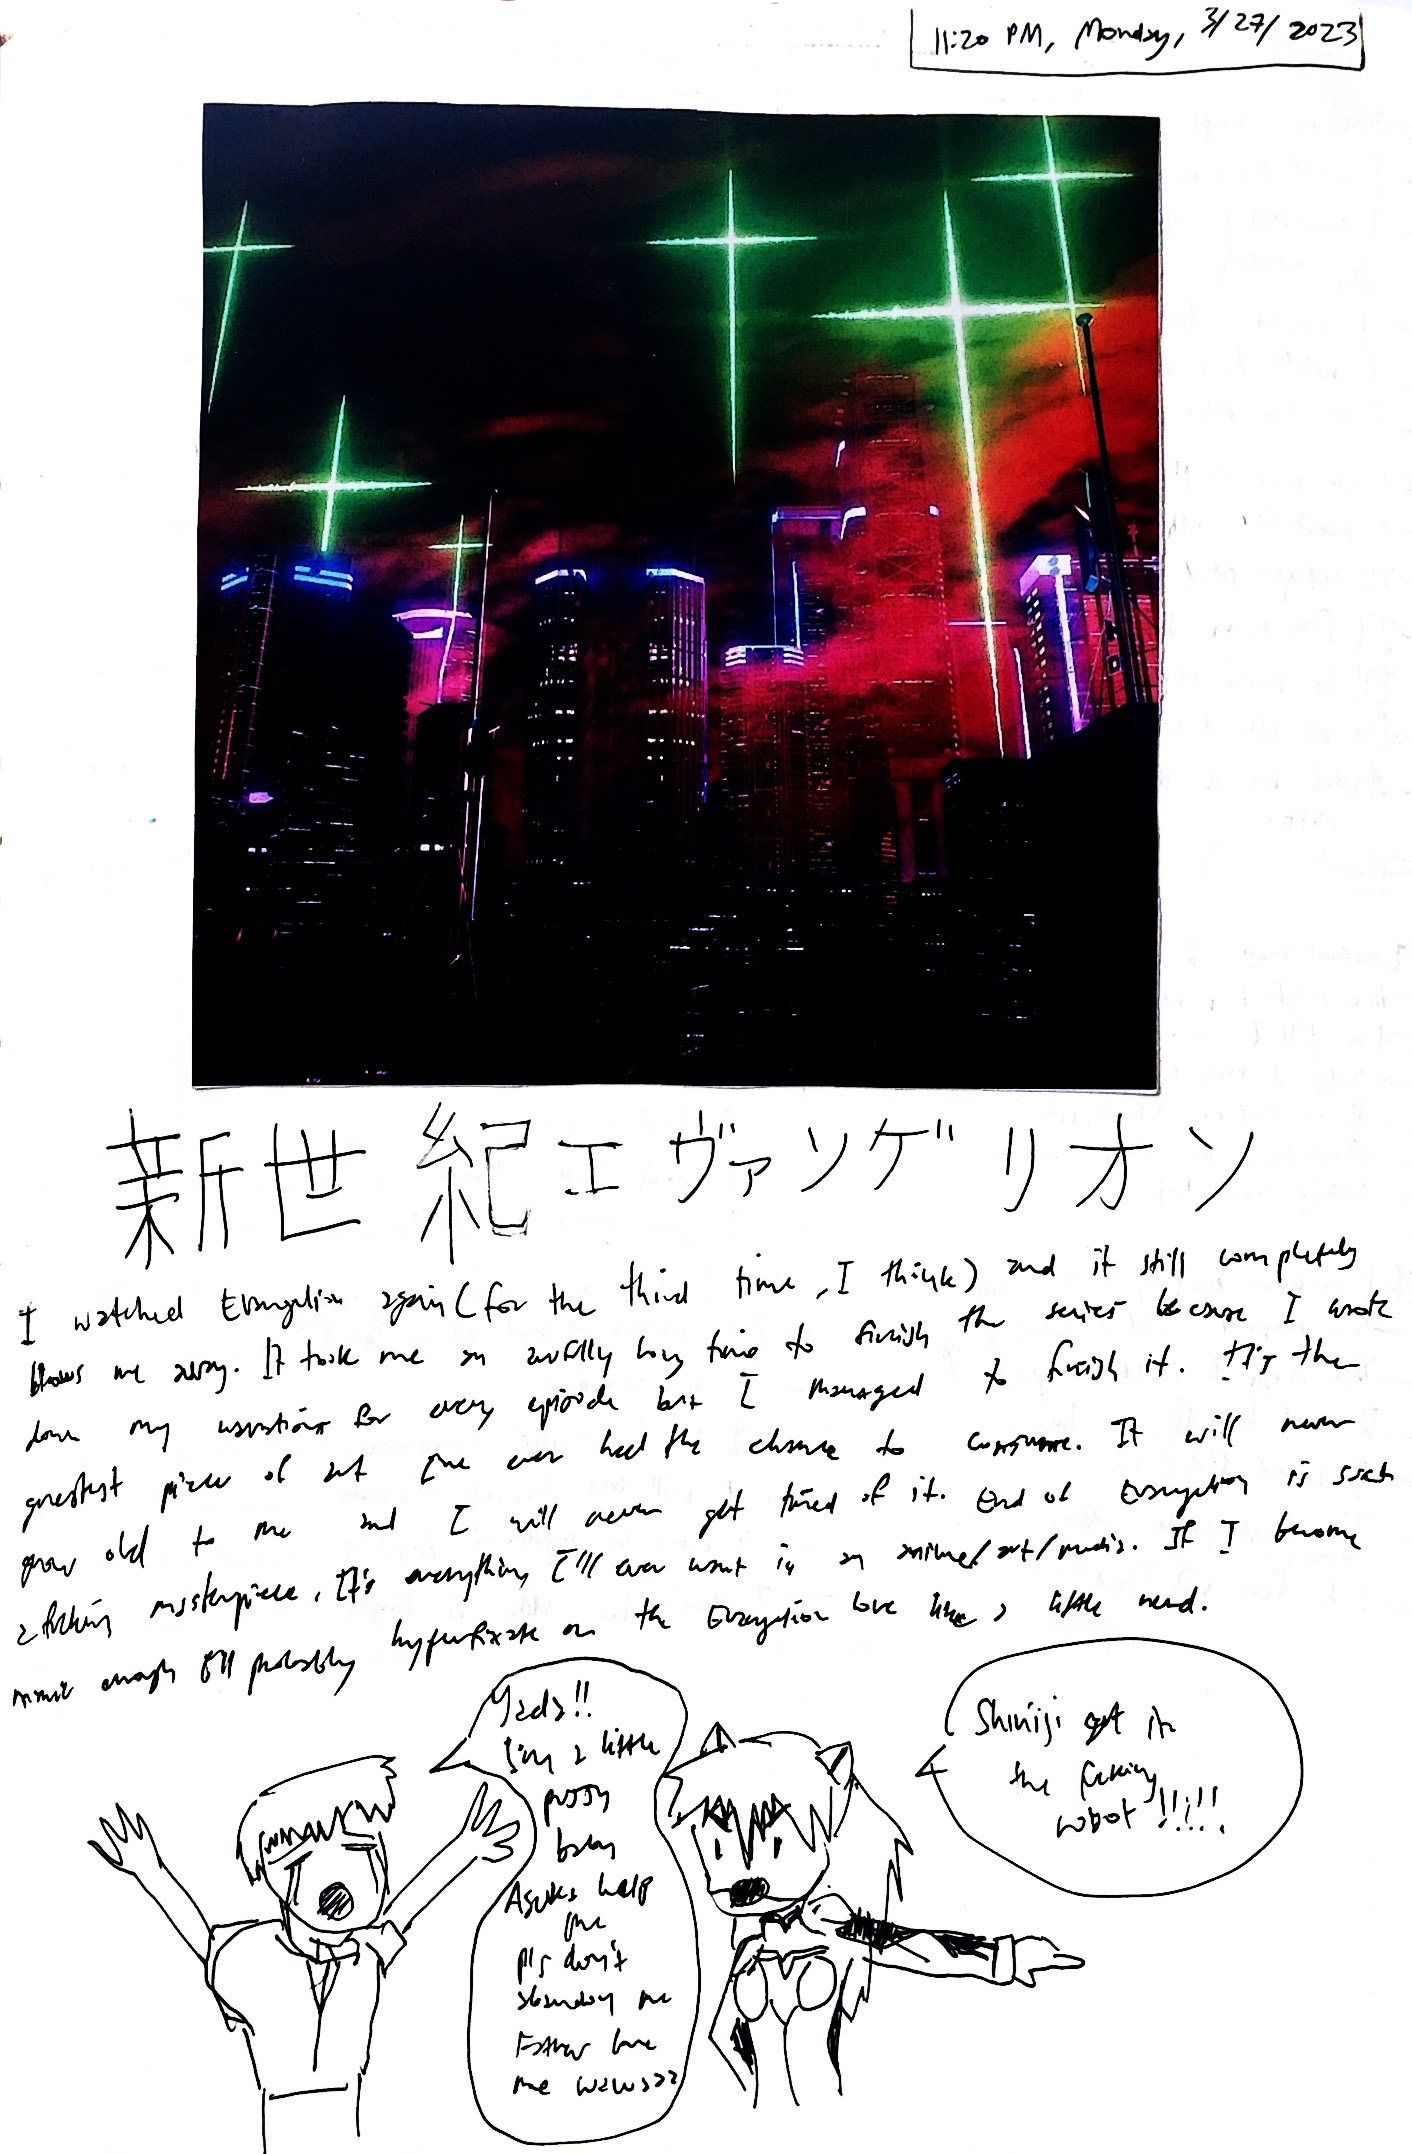 11:20 PM, Monday, 3/27/2023
新世紀エヴァンゲリオン
I watched Evangelion again (for the third time, I think) and it still completely
blows me away. It took me an awfully long time to finish the series because I wrote
down my for every episode but I managed to finish it. It's the
greatest piece of art I've ever had the chance to consume. It will never
grow old to me and I will never get tired of it. End of Evangelion is such
a fucking masterpiece. It's everything I'll ever want in an anime/art/media. If I become
manic enough I'll probably hyperfixate on the Evangelion lore like a little nerd.
I'm a little
pussy
baby
Asuka help
me
pls don't
abandon me
Father love
me
Shinji get in
the fucking
robot!!!!!